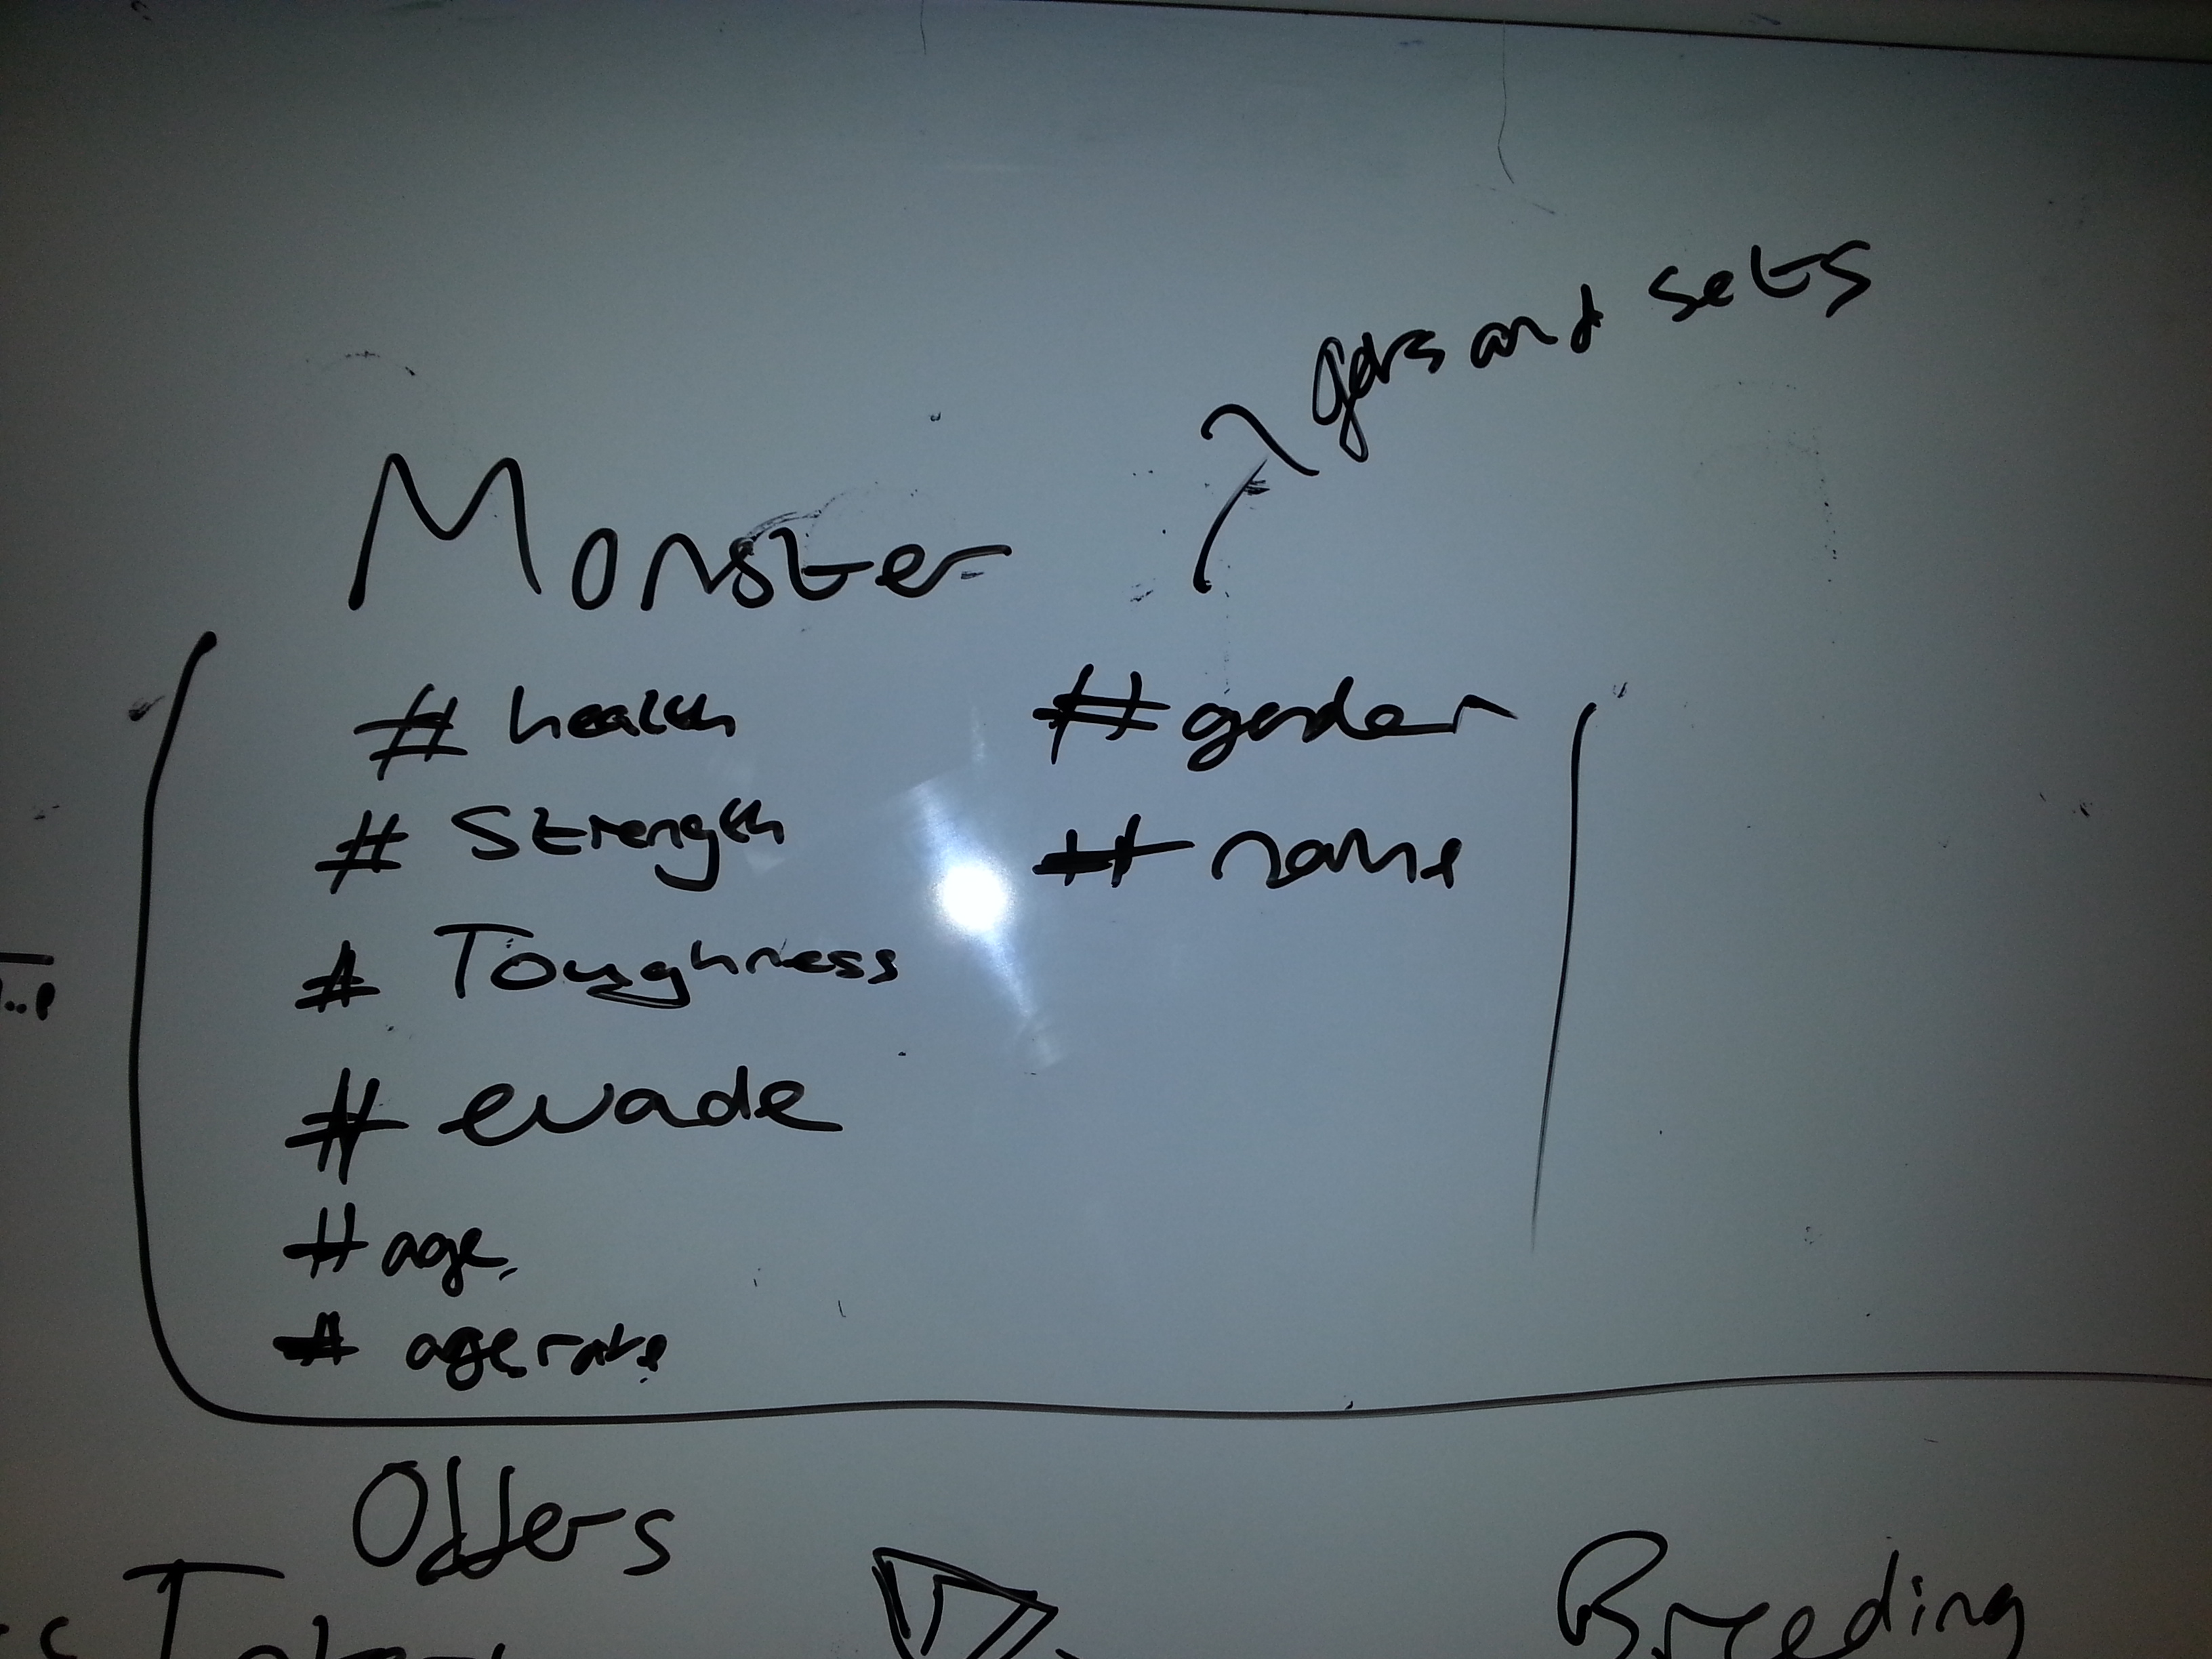 and sets
Monster
# health
# Strength
# Toughness
# evade
# age
# age rate
# gender
# name
Offers
Breeding